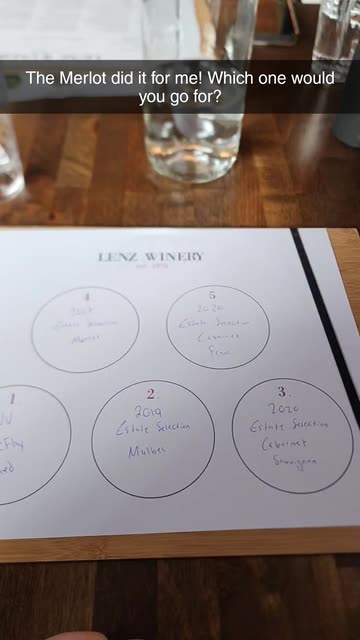 The Merlot did it for me! Which one would
you go for?
LENZ WINERY
4
Estate Selection
Merlot
5
2020
Estate Selection
Cabernet
Franc
1
2
2019
Estate Selection
Malbec
3
2020
Estate Selection
Cabernet
Sauvignon